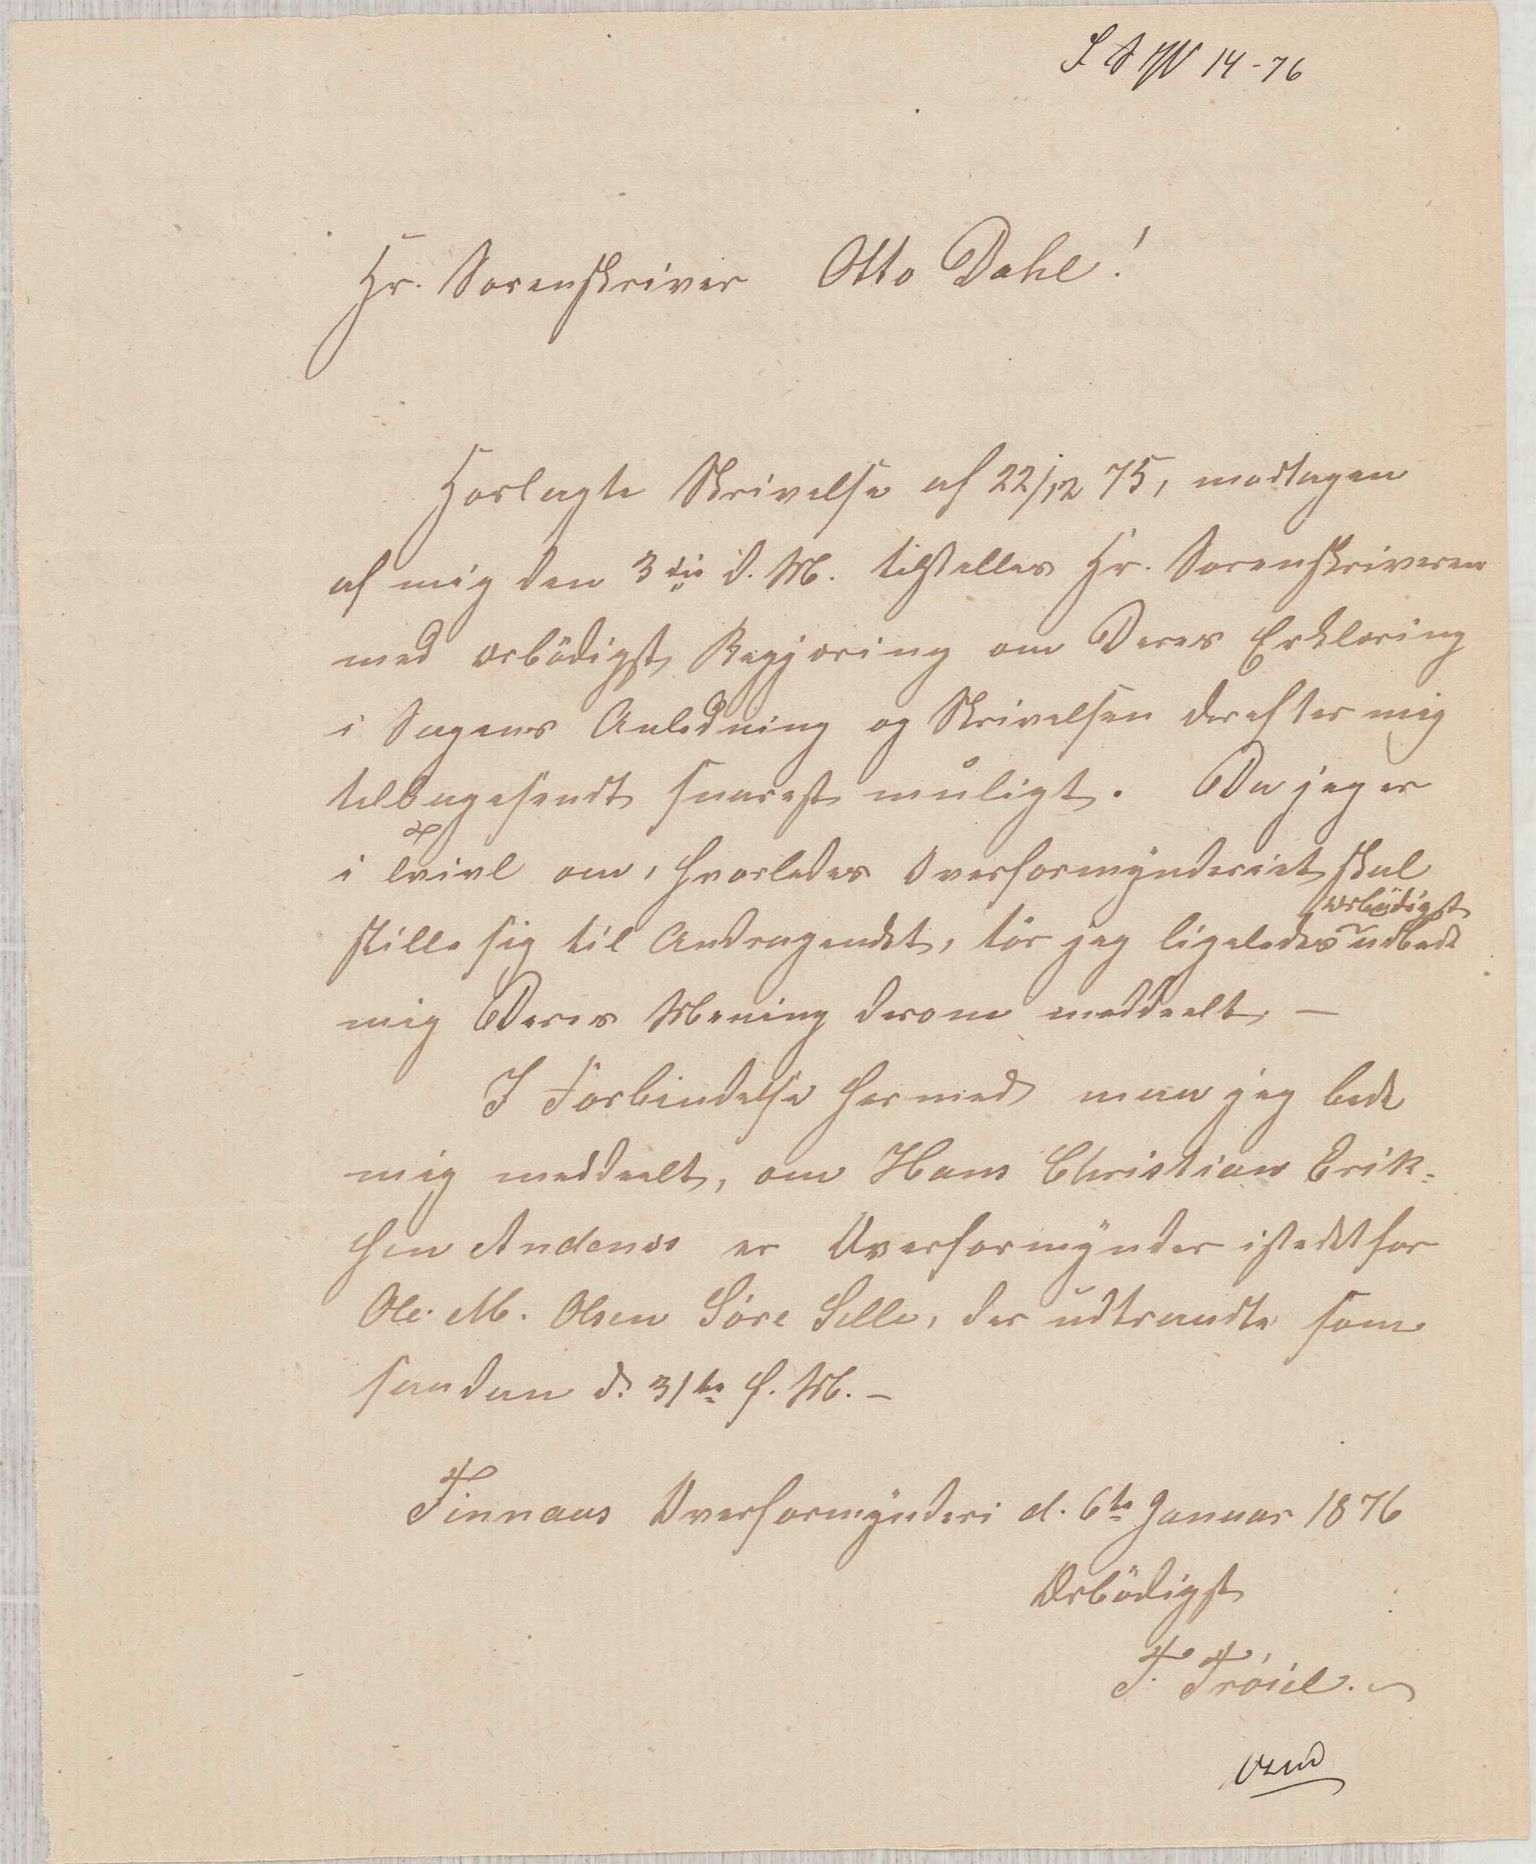 14-76
Hr. Sorenskriver Otto Dahl!
Hoslagte Skrivelse af 22/12 75, modtagen
af mig den 3die d. M. tilstilles Hr. Sorenskriveren
med ærbödigst Begjæring om Deres Erklæring
i Sagens Anledning og Skrivelsen derefter mig
tilbagesendt snarest muligt. Da jeg er
i Tvivl om, hvorledes Overformynderiet skal
stille sig til Andragendet, tör jeg ligeledes ærbödigst udbede
mig Deres Mening derom meddeelt. —
I Forbindelse hermed maa jeg bede
mig meddeelt, om Hans Christian Erik-
sen Andenæs er Overformynder istedetfor
Ole M. Olsen Söre Selle, der udtraadte som
saadan d. 31te f. M. —
Finnaas Overformynderi d. 6te Januar 1876
Ærbödigst
F. Tröiel.